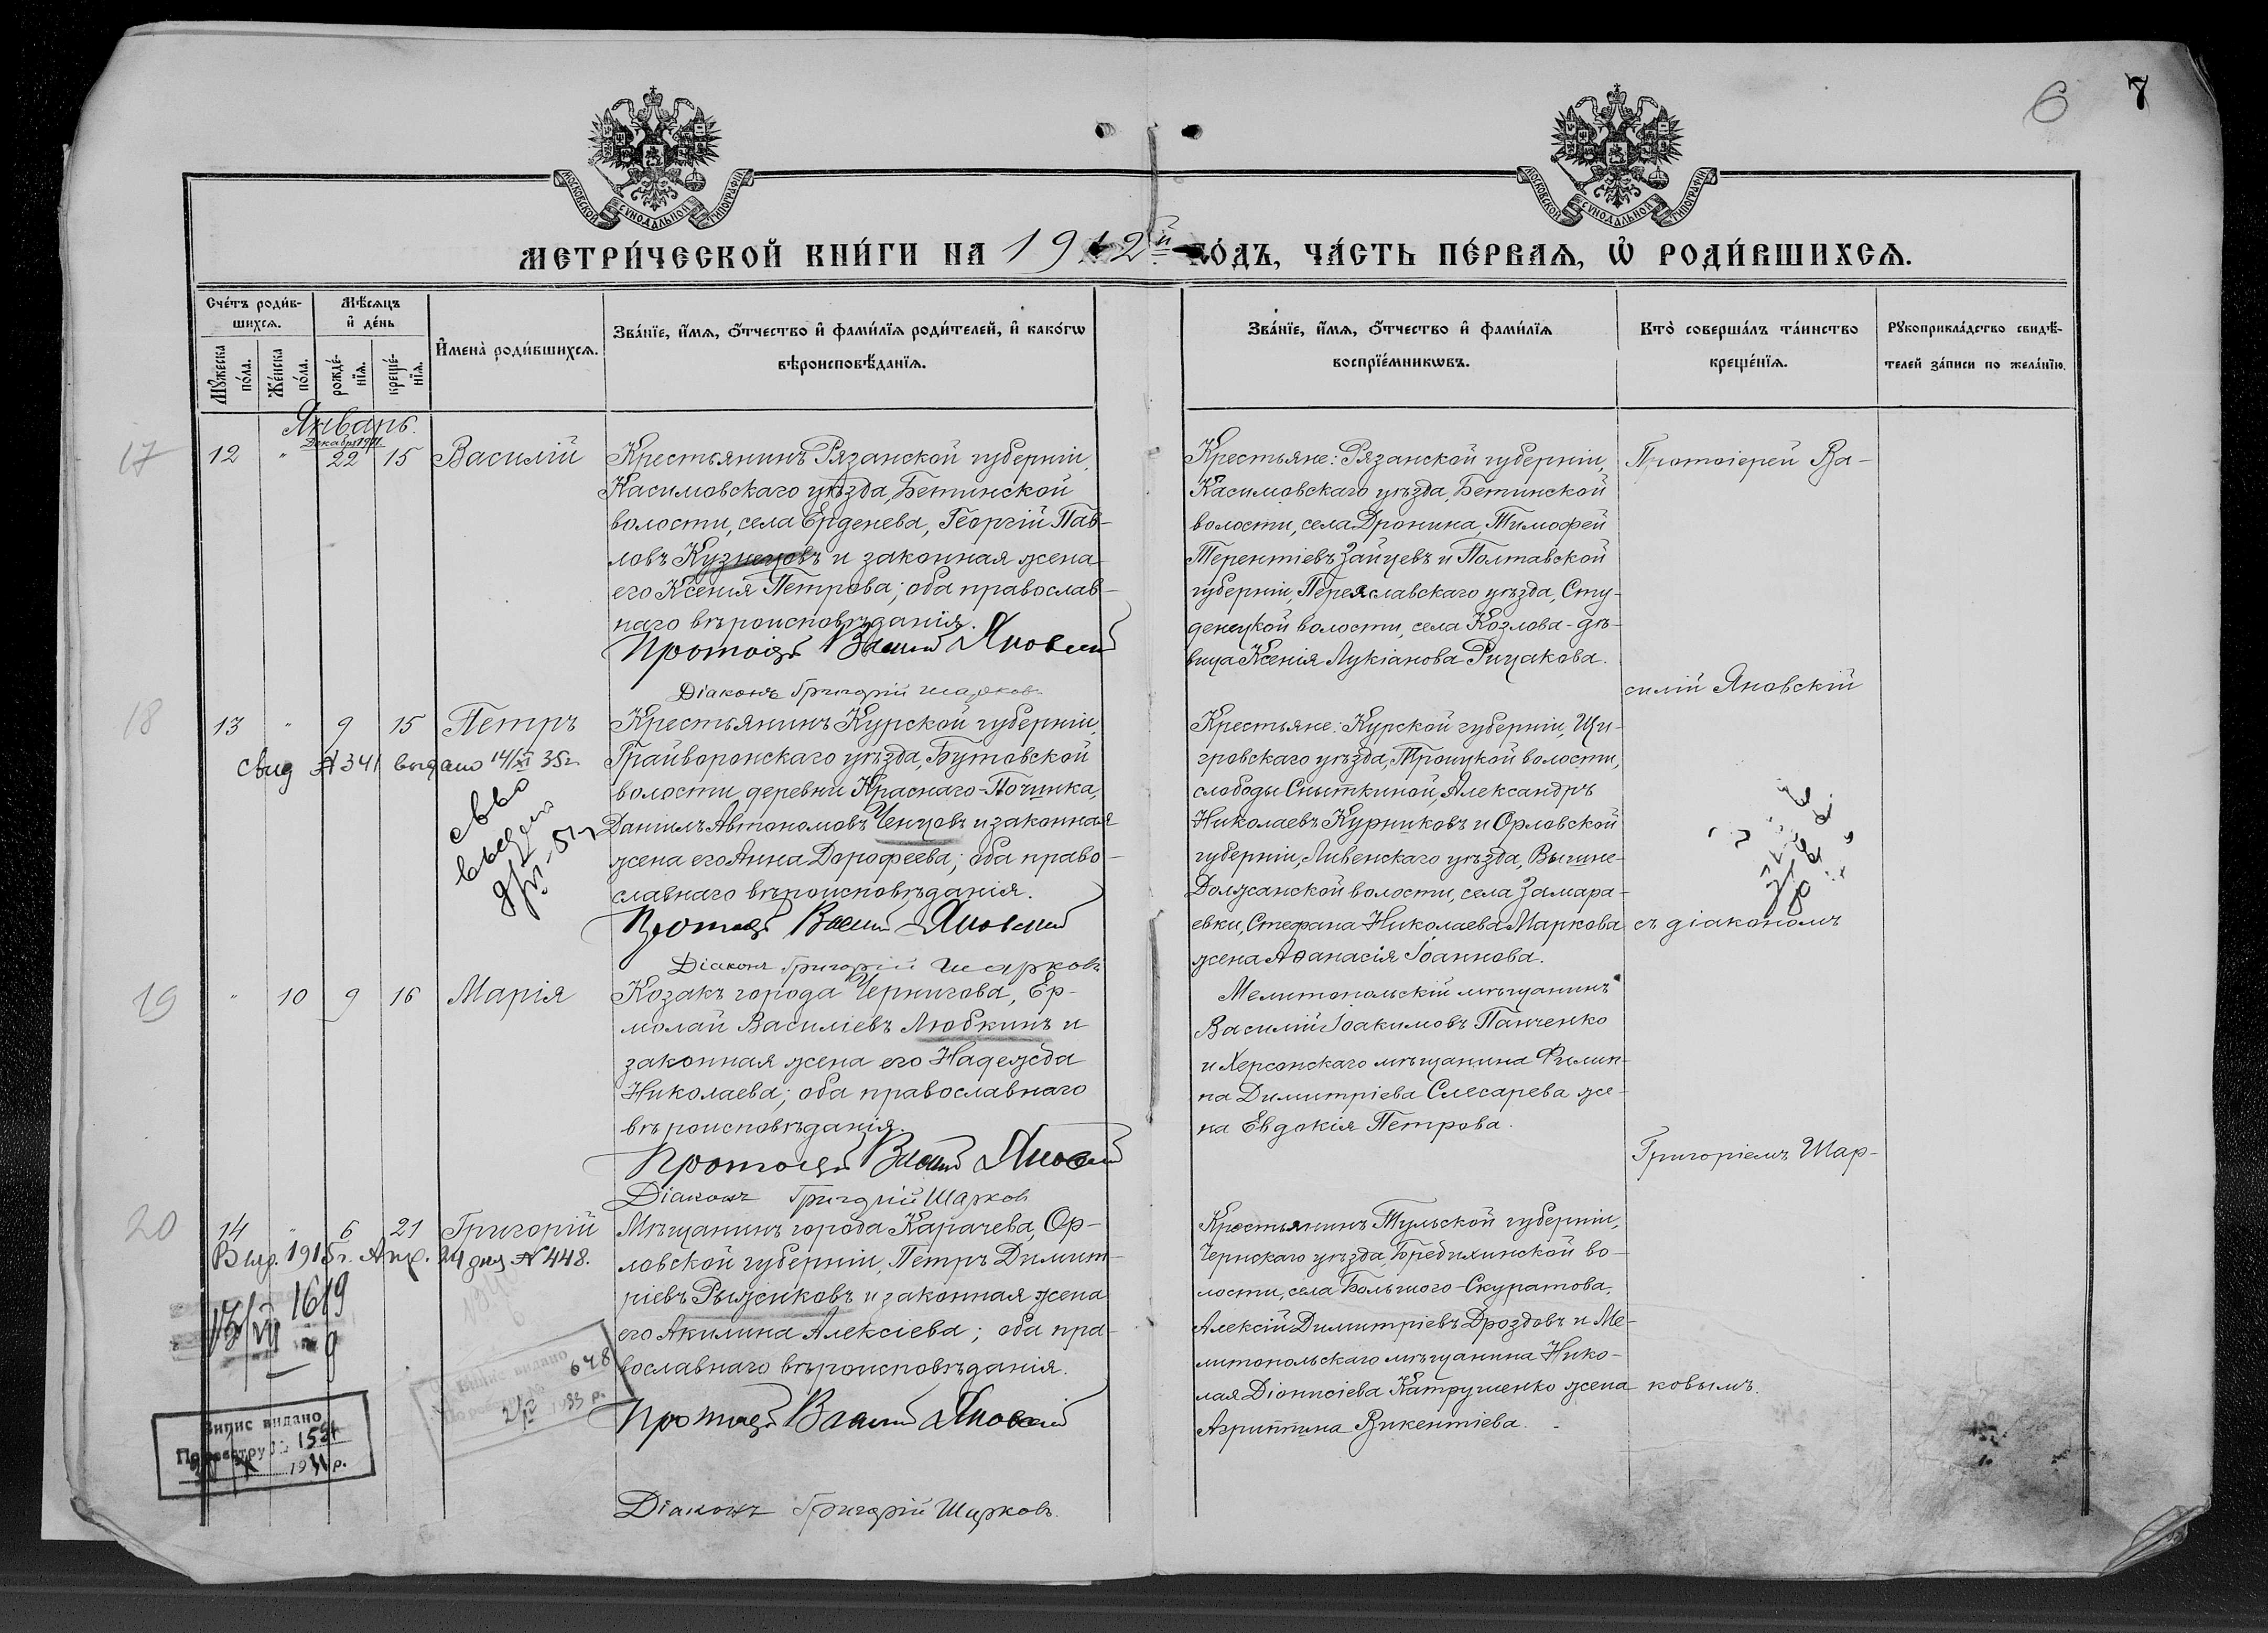 6 7
МОСКОВСКОЙ СѴНОДАЛЬНОЙ ТИПОГРАФІИ
МОСКОВСКОЙ СѴНОДАЛЬНОЙ ТИПОГРАФІИ
МЕТРИ́ЧЕСКОЙ КНИ́ГИ НА 1912й ГО́ДЪ, ЧА́СТЬ ПЕ́РВАѦ, Ѡ҆ РОДИ́ВШИХСѦ.
Сче́тъ роди́в-
шихсѧ.
Мꙋ́жеска
по́ла.
Же́нска
по́ла.
Мѣ́сѧцъ
и҆ де́нь
рожде́-
нїѧ.
креще́-
нїѧ.
И҆мена̀ роди́вшихсѧ.
Зва́нїе, и҆́мѧ, ѻ҆́тчество и҆ фами́лїѧ роди́телей, и҆ како́гѡ
вѣроисповѣ́данїѧ.
Зва́нїе, и҆́мѧ, ѻ҆́тчество и҆ фами́лїѧ
воспрїе́мникѡвъ.
Кто̀ соверша́лъ та́инство
креще́нїѧ.
Рꙋкоприкла́дство свидѣ́-
телей за́писи по жела́нїю.
Январь.
Декабря 1911.
17
12 " 22 15 Василій
Крестьянинъ Рязанской губерніи,
Касимовскаго уѣзда, Бетинской
волости, села Ерденева, Георгій Пав-
ловъ Кузнецовъ и законная жена
его Ксенія Петрова; оба православ-
наго вѣроисповѣданія.
Протоіер. Василій Яновскій
Діаконъ Григорій Шарковъ
Крестьяне: Рязанской губерніи,
Касимовскаго уѣзда, Бетинской
волости, села Дронина, Тимофей
Терентіевъ Зайцевъ и Полтавской
губерніи, Переяславскаго уѣзда, Сту-
денецкой волости, села Козлова - дѣ-
вица Ксенія Лукіанова Рицакова.
Протоіерей Ва-
силій Яновскій
18
13 " 9 15 Петръ
Свид № 341 выдано 14/XI 35г.
Крестьянинъ Курской губерніи,
Грайворонскаго уѣзда, Бутовской
волости, деревни Краснаго-Починка,
Даніилъ Автономовъ Ченцовъ и законная
жена его Анна Дорофеева; оба право-
славнаго вѣроисповѣданія.
Протоіер. Василій Яновскій
Діаконъ Григорій Шарковъ
Крестьяне: Курской губерніи, Щи-
гровскаго уѣзда, Троицкой волости,
слободы Сныткиной, Александръ
Николаевъ Курниковъ и Орловской
губерніи, Ливенскаго уѣзда, Вышне-
Должанской волости, села Замара-
евки, Стефана Николаева Маркова
жена Аѳанасія Іоаннова.
съ діакономъ
19
" 10 9 16 Марія
Козакъ города Чернигова, Ер-
молай Василіевъ Любкинъ и
законная жена его Надежда
Николаева; оба православнаго
вѣроисповѣданія.
Протоіер. Василій Яновскій
Діаконъ Григорій Шарков
Мелитопольскій мѣщанинъ
Василій Іоакимовъ Панченко
и Херсонскаго мѣщанина Филип-
па Димитріева Слесарева же-
на Евдокія Петрова.
Григоріемъ Шар-
20
14 " 6 21 Григорій
Выд. 1915г. Апр. 24 дня № 448.
1619
Мѣщанинъ города Карачева, Ор-
ловской губерніи, Петръ Димит-
ріевъ Рыжиковъ и законная жена
его Акилина Алексіева; оба пра-
вославнаго вѣроисповѣданія.
Протоіер. Василій Яновскій
Діаконъ Григорій Шарковъ.
Крестьянинъ Тульской губерніи,
Чернскаго уѣзда, Бредихинской во-
лости, села Большого-Скуратова,
Алексій Димитріевъ Дроздовъ и Ме-
литопольскаго мѣщанина Нико-
лая Діонисіева Катрушенко жена
Агриппина Викентіева.
ковымъ.
Випис видано
648
1933 р.
Випис видано
По реестру №
19 р.